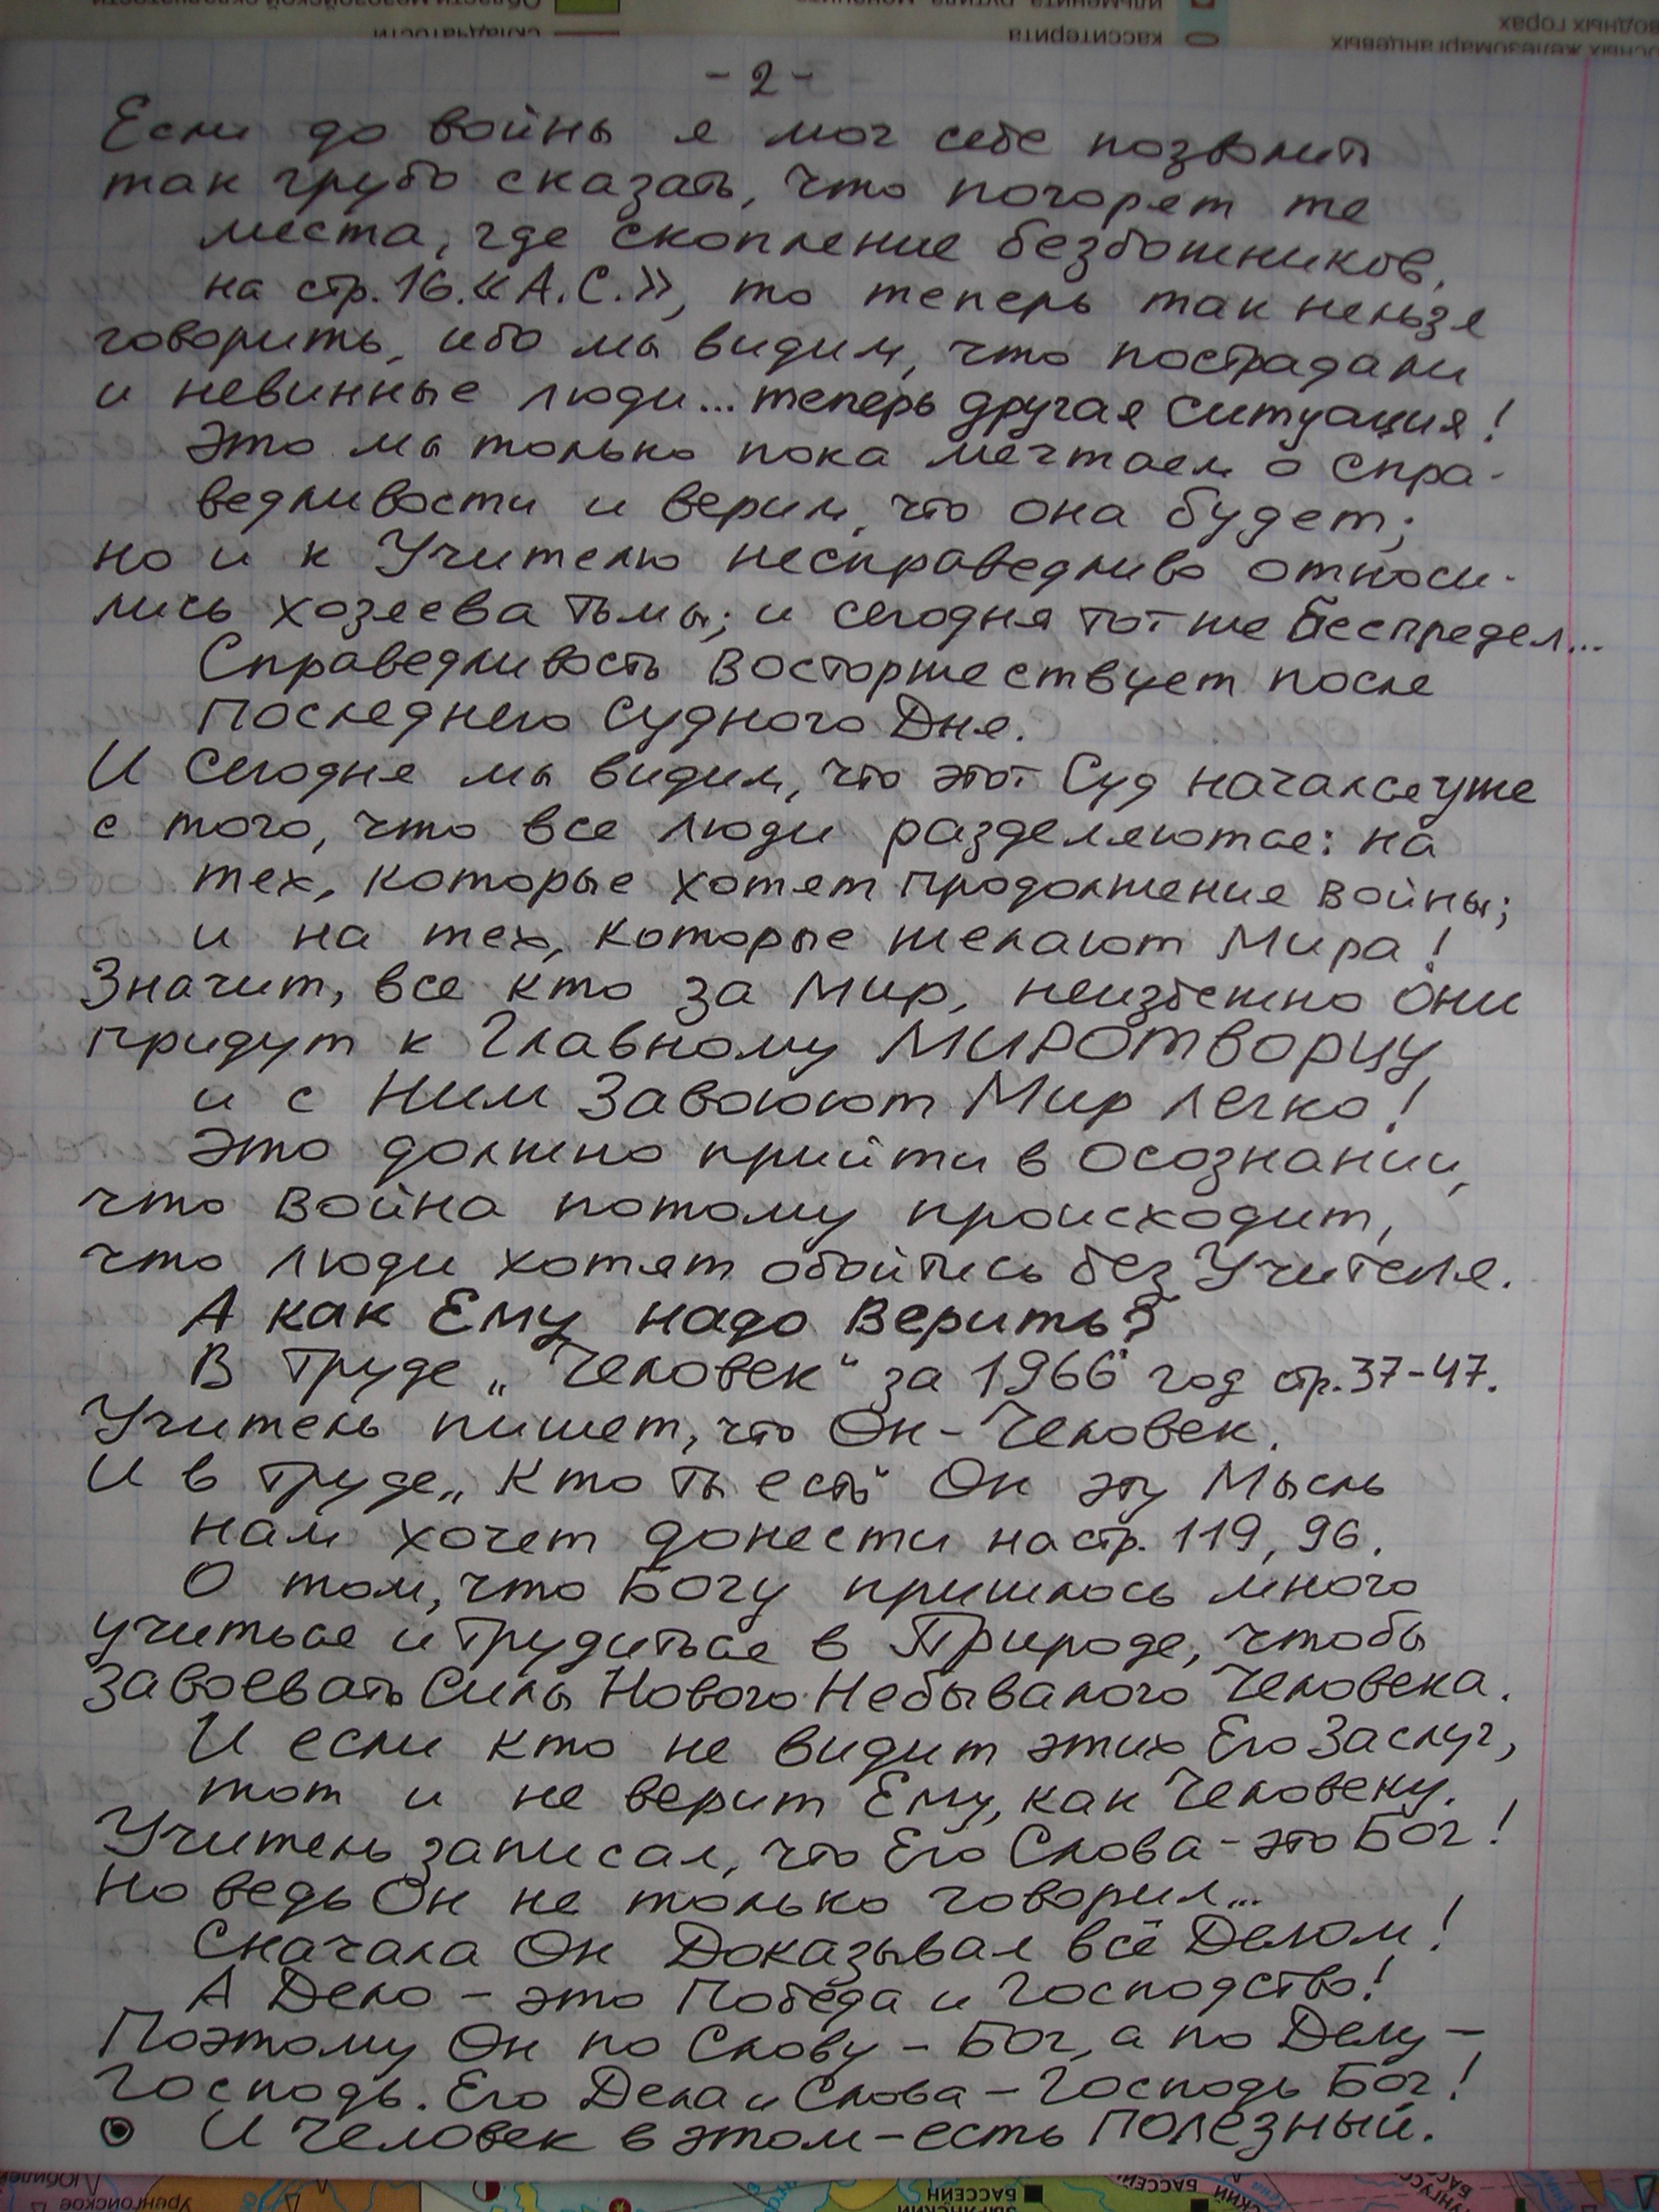 водных горах
осных железомарганцевых
ильменита, рутила, монацита
касситерита
Области мезозойской складчатости
складчатости
- 2 -
Если до войны я мог себе позволить
так грубо сказать, что погорят те
места, где скопление безбожников,
на стр. 16. «А.С.», то теперь так нельзя
говорить, ибо мы видим, что пострадали
и невинные люди... теперь другая ситуация!
Это мы только пока мечтаем о спра-
ведливости и верим, что она будет;
но и к Учителю несправедливо относи-
лись хозяева тьмы; и сегодня тот же беспредел...
Справедливость восторжествует после
Последнего Судного Дня.
И сегодня мы видим, что этот Суд начался уже
с того, что все люди разделяются: на
тех, которые хотят продолжение войны;
и на тех, которые желают Мира!
Значит, все кто за Мир, неизбежно они
придут к Главному МИРОТВОРЦУ
и с Ним Завоюют Мир легко!
Это должно прийти в осознании,
что война потому происходит,
что люди хотят обойтись без Учителя.
А как Ему надо верить?
В труде „Человек“ за 1966 год стр. 37-47.
Учитель пишет, что Он - Человек.
И в труде „Кто ты есть“ Он эту Мысль
нам хочет донести на стр. 119, 96.
О том, что Богу пришлось много
учиться и трудиться в Природе, чтобы
завоевать Силы Нового Небывалого Человека.
И если кто не видит этих Его Заслуг,
тот и не верит Ему, как Человеку.
Учитель записал, что Его Слова - это Бог!
Но ведь Он не только говорил...
Сначала Он Доказывал всё Делом!
А Дело - это Победа и Господство!
Поэтому Он по Слову - Бог, а по Делу -
Господь. Его Дела и Слова - Господь Бог!
И Человек в этом - есть ПОЛЕЗНЫЙ.
Уренгойское
БАССЕЙН
БАССЕЙН